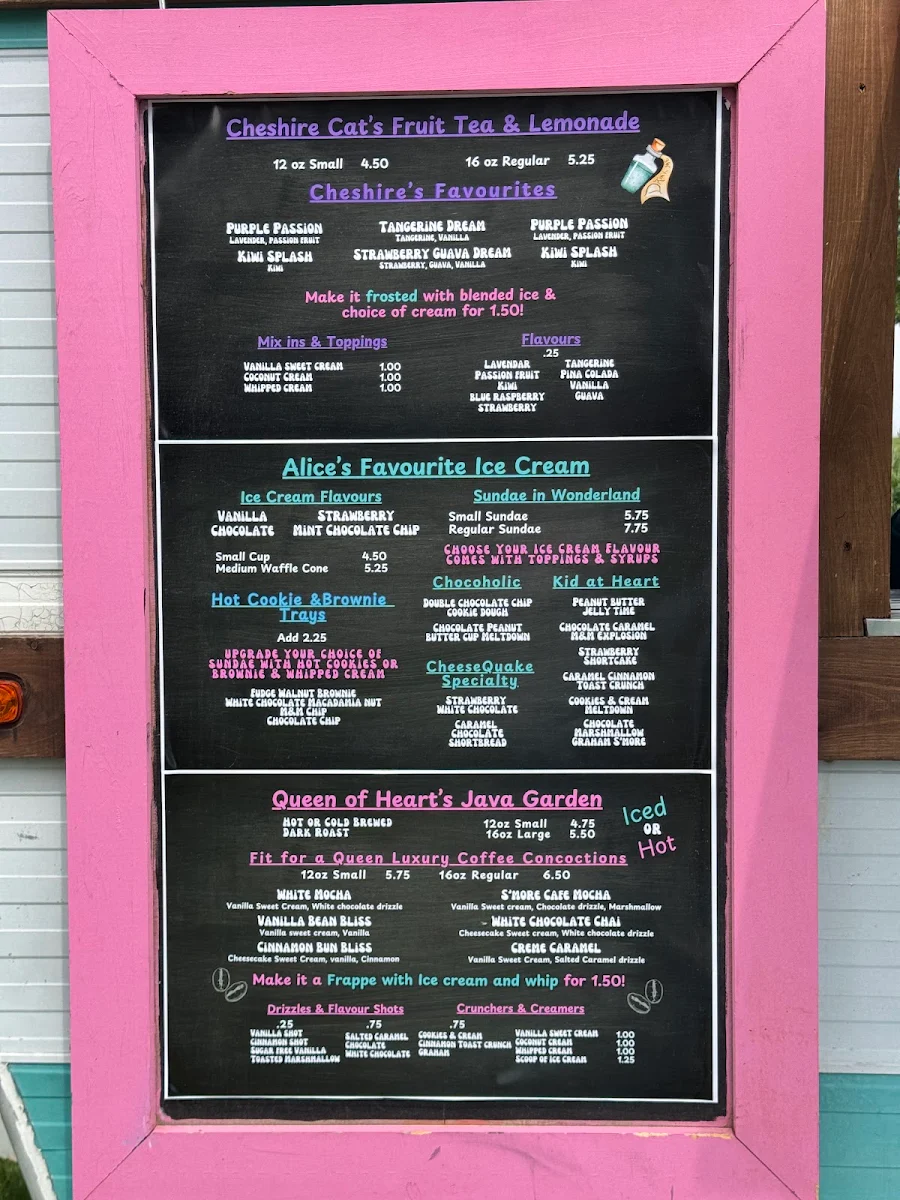 Cheshire Cat's Fruit Tea & Lemonade
12 oz Small 4.50 16 oz Regular 5.25
Cheshire's Favourites
PURPLE PASSION TANGERINE DREAM PURPLE PASSION
LAVENDER, PASSION FRUIT TANGERINE, VANILLA LAVENDER, PASSION FRUIT
KIWI SPLASH STRAWBERRY GUAVA DREAM KIWI SPLASH
KIWI STRAWBERRY, GUAVA, VANILLA KIWI
Make it frosted with blended ice &
choice of cream for 1.50!
Mix ins & Toppings
VANILLA SWEET CREAM 1.00
COCONUT CREAM 1.00
WHIPPED CREAM 1.00
Flavours
.25
LAVENDAR TANGERINE
PASSION FRUIT PINA COLADA
KIWI VANILLA
BLUE RASPBERRY GUAVA
STRAWBERRY
Alice's Favourite Ice Cream
Ice Cream Flavours
VANILLA STRAWBERRY
CHOCOLATE MINT CHOCOLATE CHIP
Small Cup 4.50
Medium Waffle Cone 5.25
Hot Cookie &Brownie
Trays
Add 2.25
UPGRADE YOUR CHOICE OF
SUNDAE WITH HOT COOKIES OR
BROWNIE & WHIPPED CREAM
FUDGE WALNUT BROWNIE
WHITE CHOCOLATE MACADAMIA NUT
M&M CHIP
CHOCOLATE CHIP
Sundae in Wonderland
Small Sundae 5.75
Regular Sundae 7.75
CHOOSE YOUR ICE CREAM FLAVOUR
COMES WITH TOPPINGS & SYRUPS
Chocoholic
DOUBLE CHOCOLATE CHIP
COOKIE DOUGH
CHOCOLATE PEANUT
BUTTER CUP MELTDOWN
CheeseQuake
Specialty
STRAWBERRY
WHITE CHOCOLATE
CARAMEL
CHOCOLATE
SHORTBREAD
Kid at Heart
PEANUT BUTTER
JELLY TIME
CHOCOLATE CARAMEL
M&M EXPLOSION
STRAWBERRY
SHORTCAKE
CARAMEL CINNAMON
TOAST CRUNCH
COOKIES & CREAM
MELTDOWN
CHOCOLATE
MARSHMALLOW
GRAHAM S'MORE
Queen of Heart's Java Garden
HOT OR COLD BREWED 12oz Small 4.75
DARK ROAST 16oz Large 5.50
Iced
OR
Hot
Fit for a Queen Luxury Coffee Concoctions
12oz Small 5.75 16oz Regular 6.50
WHITE MOCHA S'MORE CAFE MOCHA
Vanilla Sweet Cream, White chocolate drizzle Vanilla Sweet cream, Chocolate drizzle, Marshmallow
VANILLA BEAN BLISS - WHITE CHOCOLATE CHAI
Vanilla sweet cream, Vanilla Cheesecake Sweet Cream, White chocolate drizzle
CINNAMON BUN BLISS CREME CARAMEL
Cheesecake Sweet Cream, vanilla, Cinnamon Vanilla Sweet Cream, Salted Caramel drizzle
Make it a Frappe with Ice cream and whip for 1.50!
Drizzles & Flavour Shots
.25 .75
VANILLA SHOT SALTED CARAMEL
CINNAMON SHOT CHOCOLATE
SUGAR FREE VANILLA WHITE CHOCOLATE
TOASTED MARSHMALLOW
Crunchers & Creamers
.75
COOKIES & CREAM VANILLA SWEET CREAM 1.00
CINNAMON TOAST CRUNCH COCONUT CREAM 1.00
GRAHAM WHIPPED CREAM 1.00
SCOOP OF ICE CREAM 1.25